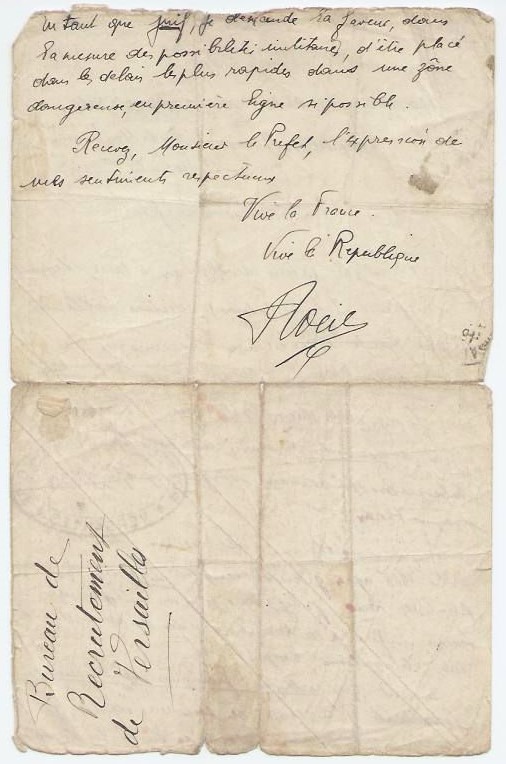 en tant que juif, je demande la faveur, dans
la mesure des possibilités militaires, d'être placé
dans les délais les plus rapides dans une zône
dangereuse, en première ligne si possible.
Recevez, Monsieur le Prefet, l'expression de
mes sentiments respectueux
Vive la France.
Vive la Republique
Bureau de
Recrutement
de Versailles